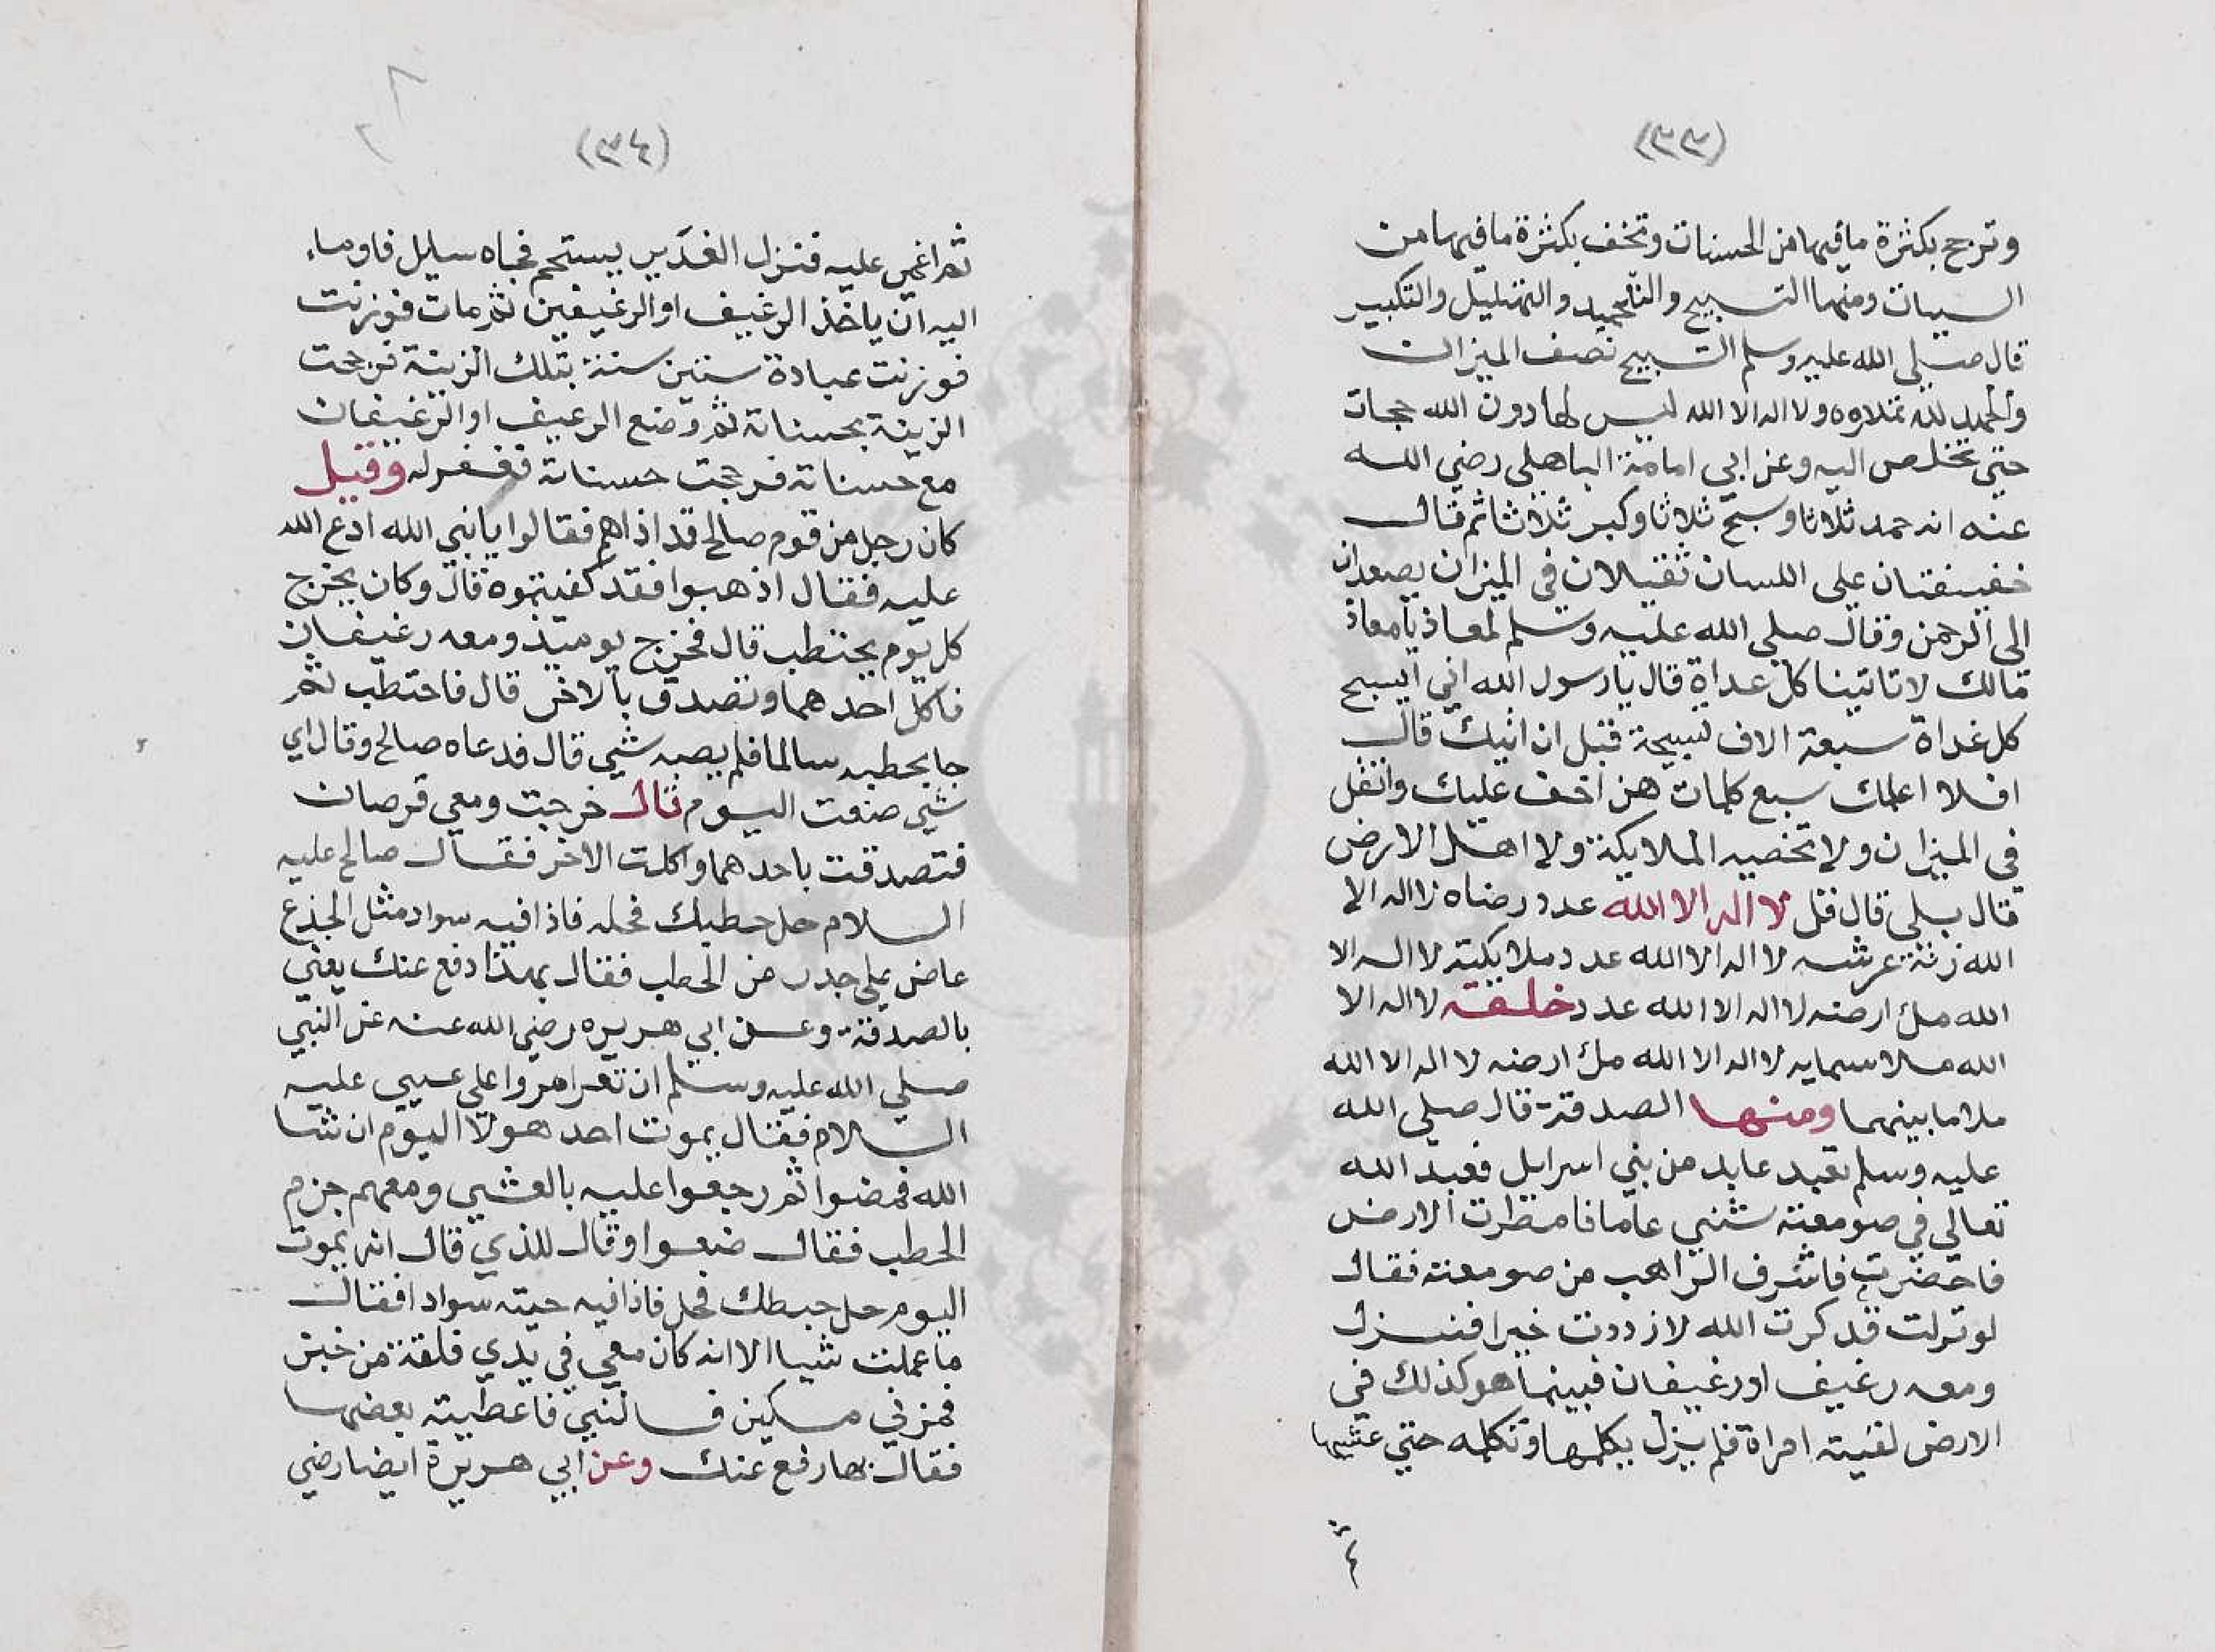 (٣٣)
وترجح بكثرة ما فيها من الحسنات وتخف بكثرة ما فيها من
السيات ومنها التسبيح والتحميد والتهليل والتكبير
قال صلي الله عليه وسلم التسبيح نصف الميزان
والحمد لله تملاوه ولا اله الا الله ليس لها دون الله حجاب
حتي تخلص اليه وعن ابي امامة الباهلي رضي الله
عنه انه حمد ثلاثا وسبح ثلاثا وكبر ثلاثا ثم قال
خفيفتان علي اللسان ثقيلان في الميزان يصعدان
الي الرحمن وقال صلي الله عليه وسلم لمعاذ يا معاذ
مالك لا تاتينا كل غداة قال يا رسول الله اني اسبح
كل غداة سبعة الاف تسبيحة قبل ان اتيك قال
افلا اعلمك سبع كلمات هن اخف عليك واثقل
في الميزان ولا تحصيه الملايكة ولا اهل الارض
قال بلي قال قل لا اله الا الله عدد رضاه لا اله الا
الله زنة عرشه لا اله الا الله عدد ملايكته لا اله الا
الله مل ارضه لا اله الا الله عدد خلقه لا اله الا
الله ملا سمايه لا اله الا الله مل ارضه لا اله الا الله
ملا ما بينهما ومنها الصدقة قال صلي الله
عليه وسلم تعبد عابد من بني اسرايل فعبد الله
تعالي في صومعته ستني عاما فامطرت الارض
فاخضرت فاشرف الراهب من صومعته فقال
لو نزلت فذكرت الله لازددت خيرا فنزل
ومعه رغيف او رغيفان فبينما هو كذلك في
الارض لقيته امراة فلم يزل يكلمها وتكلمه حتي غشيها
(٣٤)
ثم اغمي عليه فنزل الغدير يستحم فجاه سايل فاوما
اليه ان ياخذ الرغيف او الرغيفين ثم مات فوزنت
فوزنت عبادة ستين سنة بتلك الزينة فرجحت
الزينة بحسناته ثم وضع الرغيف او الرغيفان
مع حسناته فرجحت حسناته فغفر له وقيل
كان رجل من قوم صالح قد اذاهم فقالوا يا نبي الله ادع الله
عليه فقال اذهبوا فقد كفيتموه قال وكان يخرج
كل يوم يحتطب قال فخرج يوميذ ومعه رغيفان
فاكل احدهما وتصدق بالاخر قال فاحتطب ثم
جا بحطبه سالما فلم يصبه شي قال فدعاه صالح وقال اي
شي صنعت اليوم قال خرجت ومعي قرصان
فتصدقت باحدهما واكلت الاخر فقال صالح عليه
السلام حل حطبك فحله فاذا فيه سواد مثل الجذع
عاض علي جدر من الحطب فقال بهذا دفع عنك يعني
بالصدقة وعن ابي هريره رضي الله عنه عن النبي
صلي الله عليه وسلم ان نفرا مروا علي عيسي عليه
السلام فقال يموت احد هولا اليوم ان شا
الله فمضوا ثم رجعوا عليه بالعشي ومعهم حزم
الحطب فقال ضعوا وقال للذي قال انه يموت
اليوم حل حبطك فحل فاذا فيه حيته سوادا فقال
ما عملت شيا الا انه كان معي في يدي فلقة من خبز
فمر بي مسكين فسالني فاعطيته بعضها
فقال بها رفع عنك وعن ابي هريرة ايضا رضي